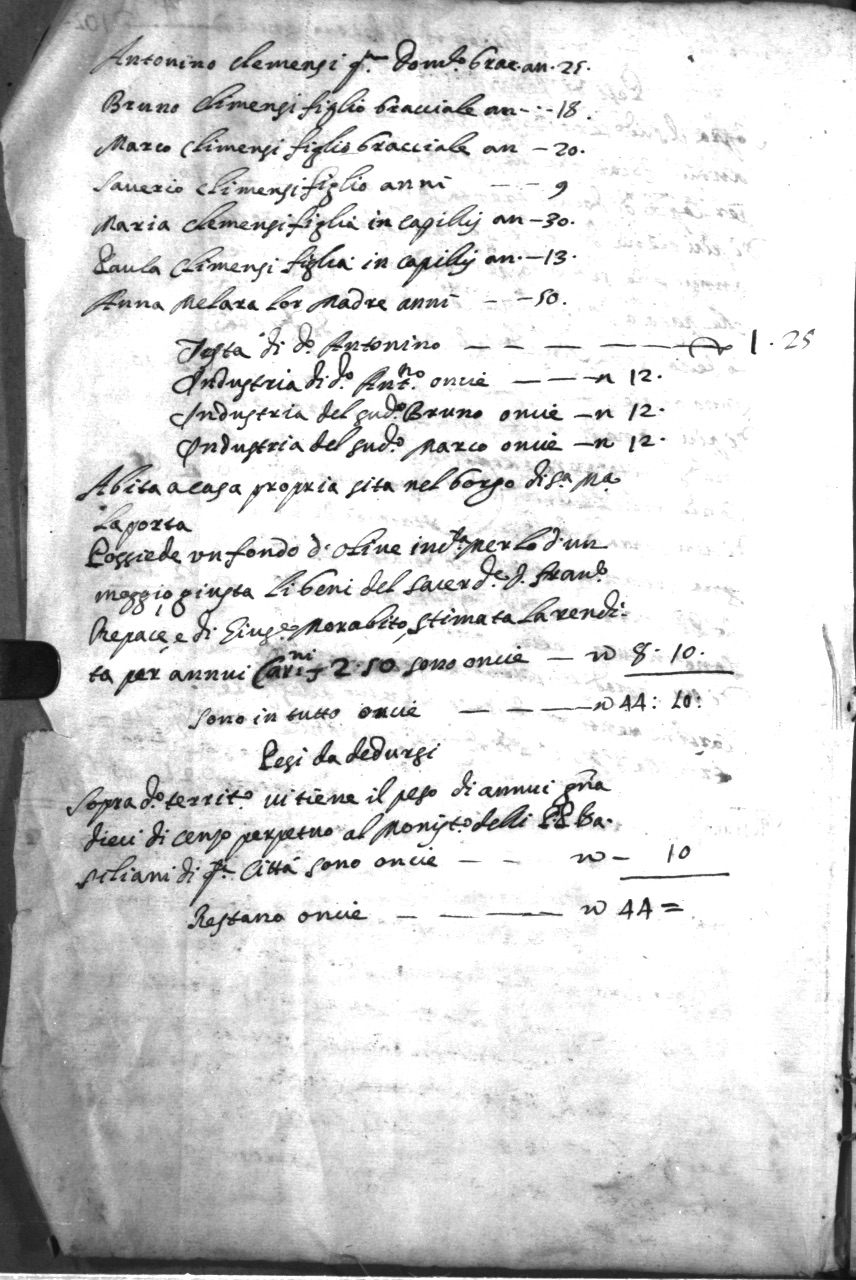 Antonino Clemensi q.m Dom.co brac. an. 25.
Bruno Climensi figlio bracciale an - - 18.
Marco Climensi figlio bracciale an - 20.
Saverio Climensi figlio anni - - 9
Maria Clemensi figlia in capillis an - 30.
Paula Climensi figlia in capillis an. - 13.
Anna Melara lor Madre anni - - 50.
Testa di d.o Antonino — — — — — 1 . 25
Industria di d.o Ant.no oncie — — n 12.
Industria del sud.o Bruno oncie — n 12.
Industria del sud.o Marco oncie — n 12.
Abita a casa propria sita nel borgo di S.a M.a
la porta
Possiede un fondo d'olive in d'un
moggio giusta li beni del Sacerd.e D. Fran.co
Repace, e di Gius.e Morabito, stimata la rendi-
ta per annui Carini 2.50 sono oncie — n 8. 10.
Sono in tutto oncie — — — n 44: 10:
Pesi da dedursi
Sopra d.o territ.o vi tiene il peso di annui grana
dieci di censo perpetuo al Monist.o delli PP. Ba-
siliani di q.a Città sono oncie — - n - 10
Restano oncie — — — n 44 =